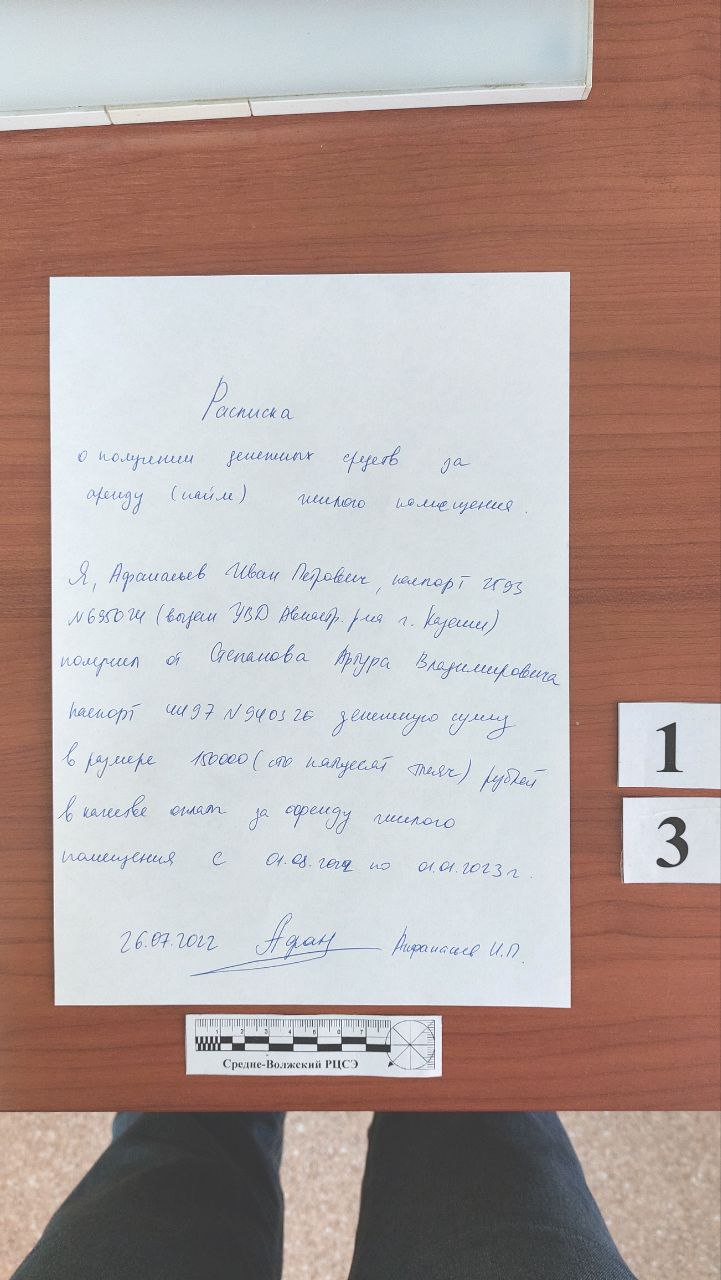 Расписка
о получении денежных средств за
аренду (найм) жилого помещения.
Я, Афанасьев Иван Петрович, паспорт 2593
№695024 (выдан УВД Авиастр. р-на г. Казани)
получил от Степанова Артура Владимировича
паспорт 4497 №940326 денежную сумму
в размере 150000 (сто пятьдесят тысяч) рублей
в качестве оплаты за аренду жилого
помещения с 01.08.2022 по 01.01.2023 г.
26.07.2022 Афан Афанасьев И.П.
1
3
1 2 3 4 5 6 7
Средне-Волжский РЦСЭ